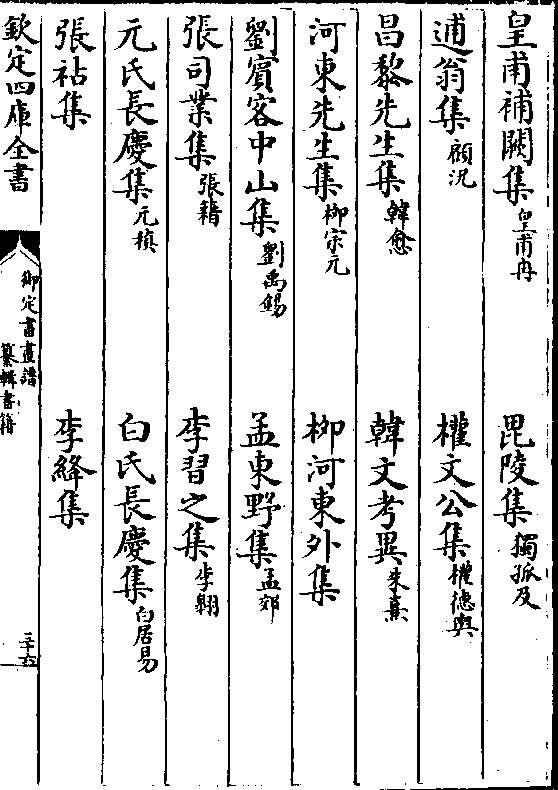 皇甫補闕集皇甫冉　毘陵集獨孤及
逋翁集顧況　權文公集權德輿
昌黎先生集韓愈　韓文考異朱熹
河東先生集柳宗元　柳河東外集
劉賓客中山集劉禹錫　孟東野集孟郊
張司業集張籍　李習之集李翱
元氏長慶集元稹　白氏長慶集白居易
張祜集　李絳集
欽定四庫全書
御定書畫譜
纂輯書籍
三十六